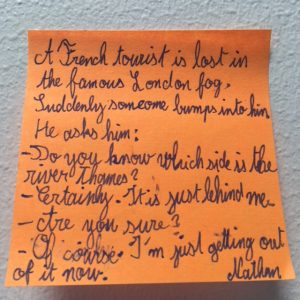 A French tourist is lost in
the famous London fog.
Suddenly someone bumps into him
He asks him:
- Do you know which side is the
river Thames?
- Certainly. It is just behind me.
- Are you sure?
- Of course. I'm just getting out
of it now. Nathan